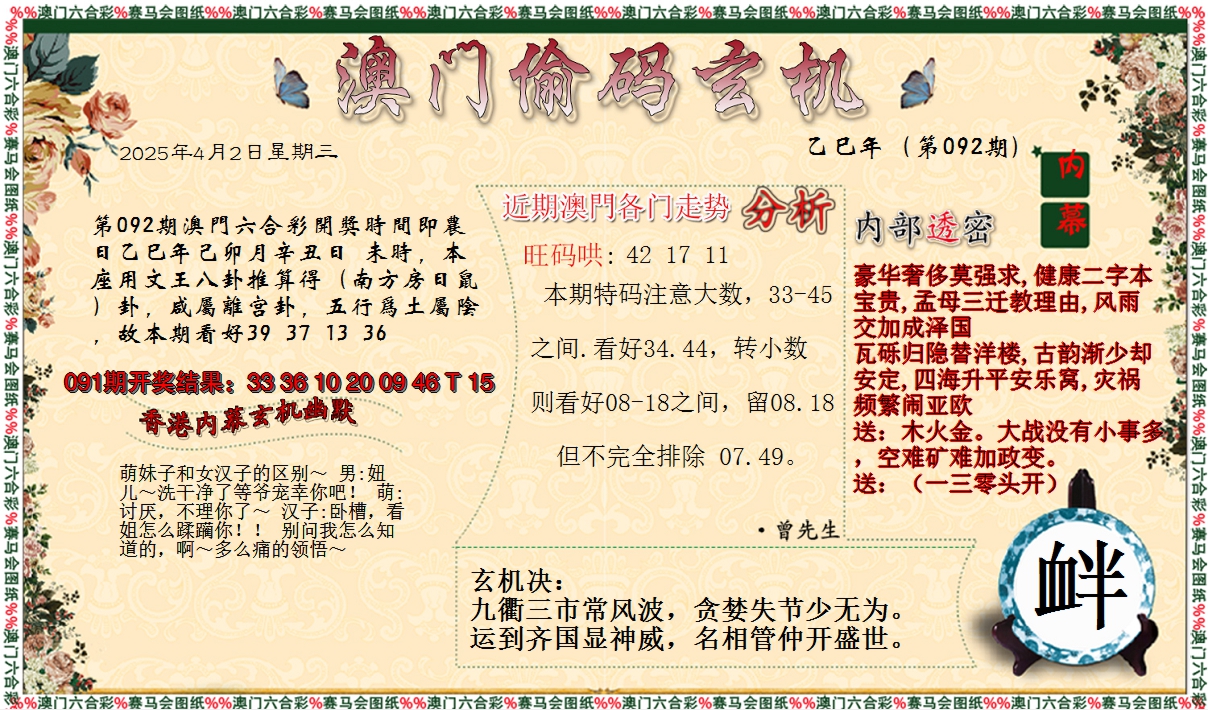 %%澳门六合彩%赛马会图纸%%澳门六合彩%赛马会图纸%%澳门六合彩%赛马会图纸%%澳门六合彩%赛马会图纸%%澳门六合彩%赛马会图纸%%澳门六合彩%赛马会图纸%%
澳门偷码玄机
2025年4月2日星期三
乙巳年（第092期）
内幕
第092期澳門六合彩開獎時間即農
日乙巳年己卯月辛丑日 未時，本
座用文王八卦推算得（南方房日鼠
）卦，咸屬離宫卦，五行爲土屬陰
，故本期看好39 37 13 36
091期开奖结果：33 36 10 20 09 46 T 15
香港内幕玄机幽默
萌妹子和女汉子的区别～ 男:妞
儿～洗干净了等爷宠幸你吧！ 萌:
讨厌，不理你了～ 汉子:卧槽，看
姐怎么蹂躏你！！ 别问我怎么知
道的，啊～多么痛的领悟～
近期澳門各门走势 分析
旺码哄: 42 17 11
本期特码注意大数，33-45
之间.看好34.44，转小数
则看好08-18之间，留08.18
但不完全排除 07.49。
·曾先生
内部透密
豪华奢侈莫强求,健康二字本
宝贵,孟母三迁教理由,风雨
交加成泽国
瓦砾归隐替洋楼,古韵渐少却
安定,四海升平安乐窝,灾祸
频繁闹亚欧
送：木火金。大战没有小事多
，空难矿难加政变。
送：（一三零头开）
玄机决：
九衢三市常风波，贪婪失节少无为。
运到齐国显神威，名相管仲开盛世。
衅
%%澳门六合彩%赛马会图纸%%澳门六合彩%赛马会图纸%%澳门六合彩%赛马会图纸%%澳门六合彩%赛马会图纸%%澳门六合彩%赛马会图纸%%澳门六合彩%赛马会图纸%%